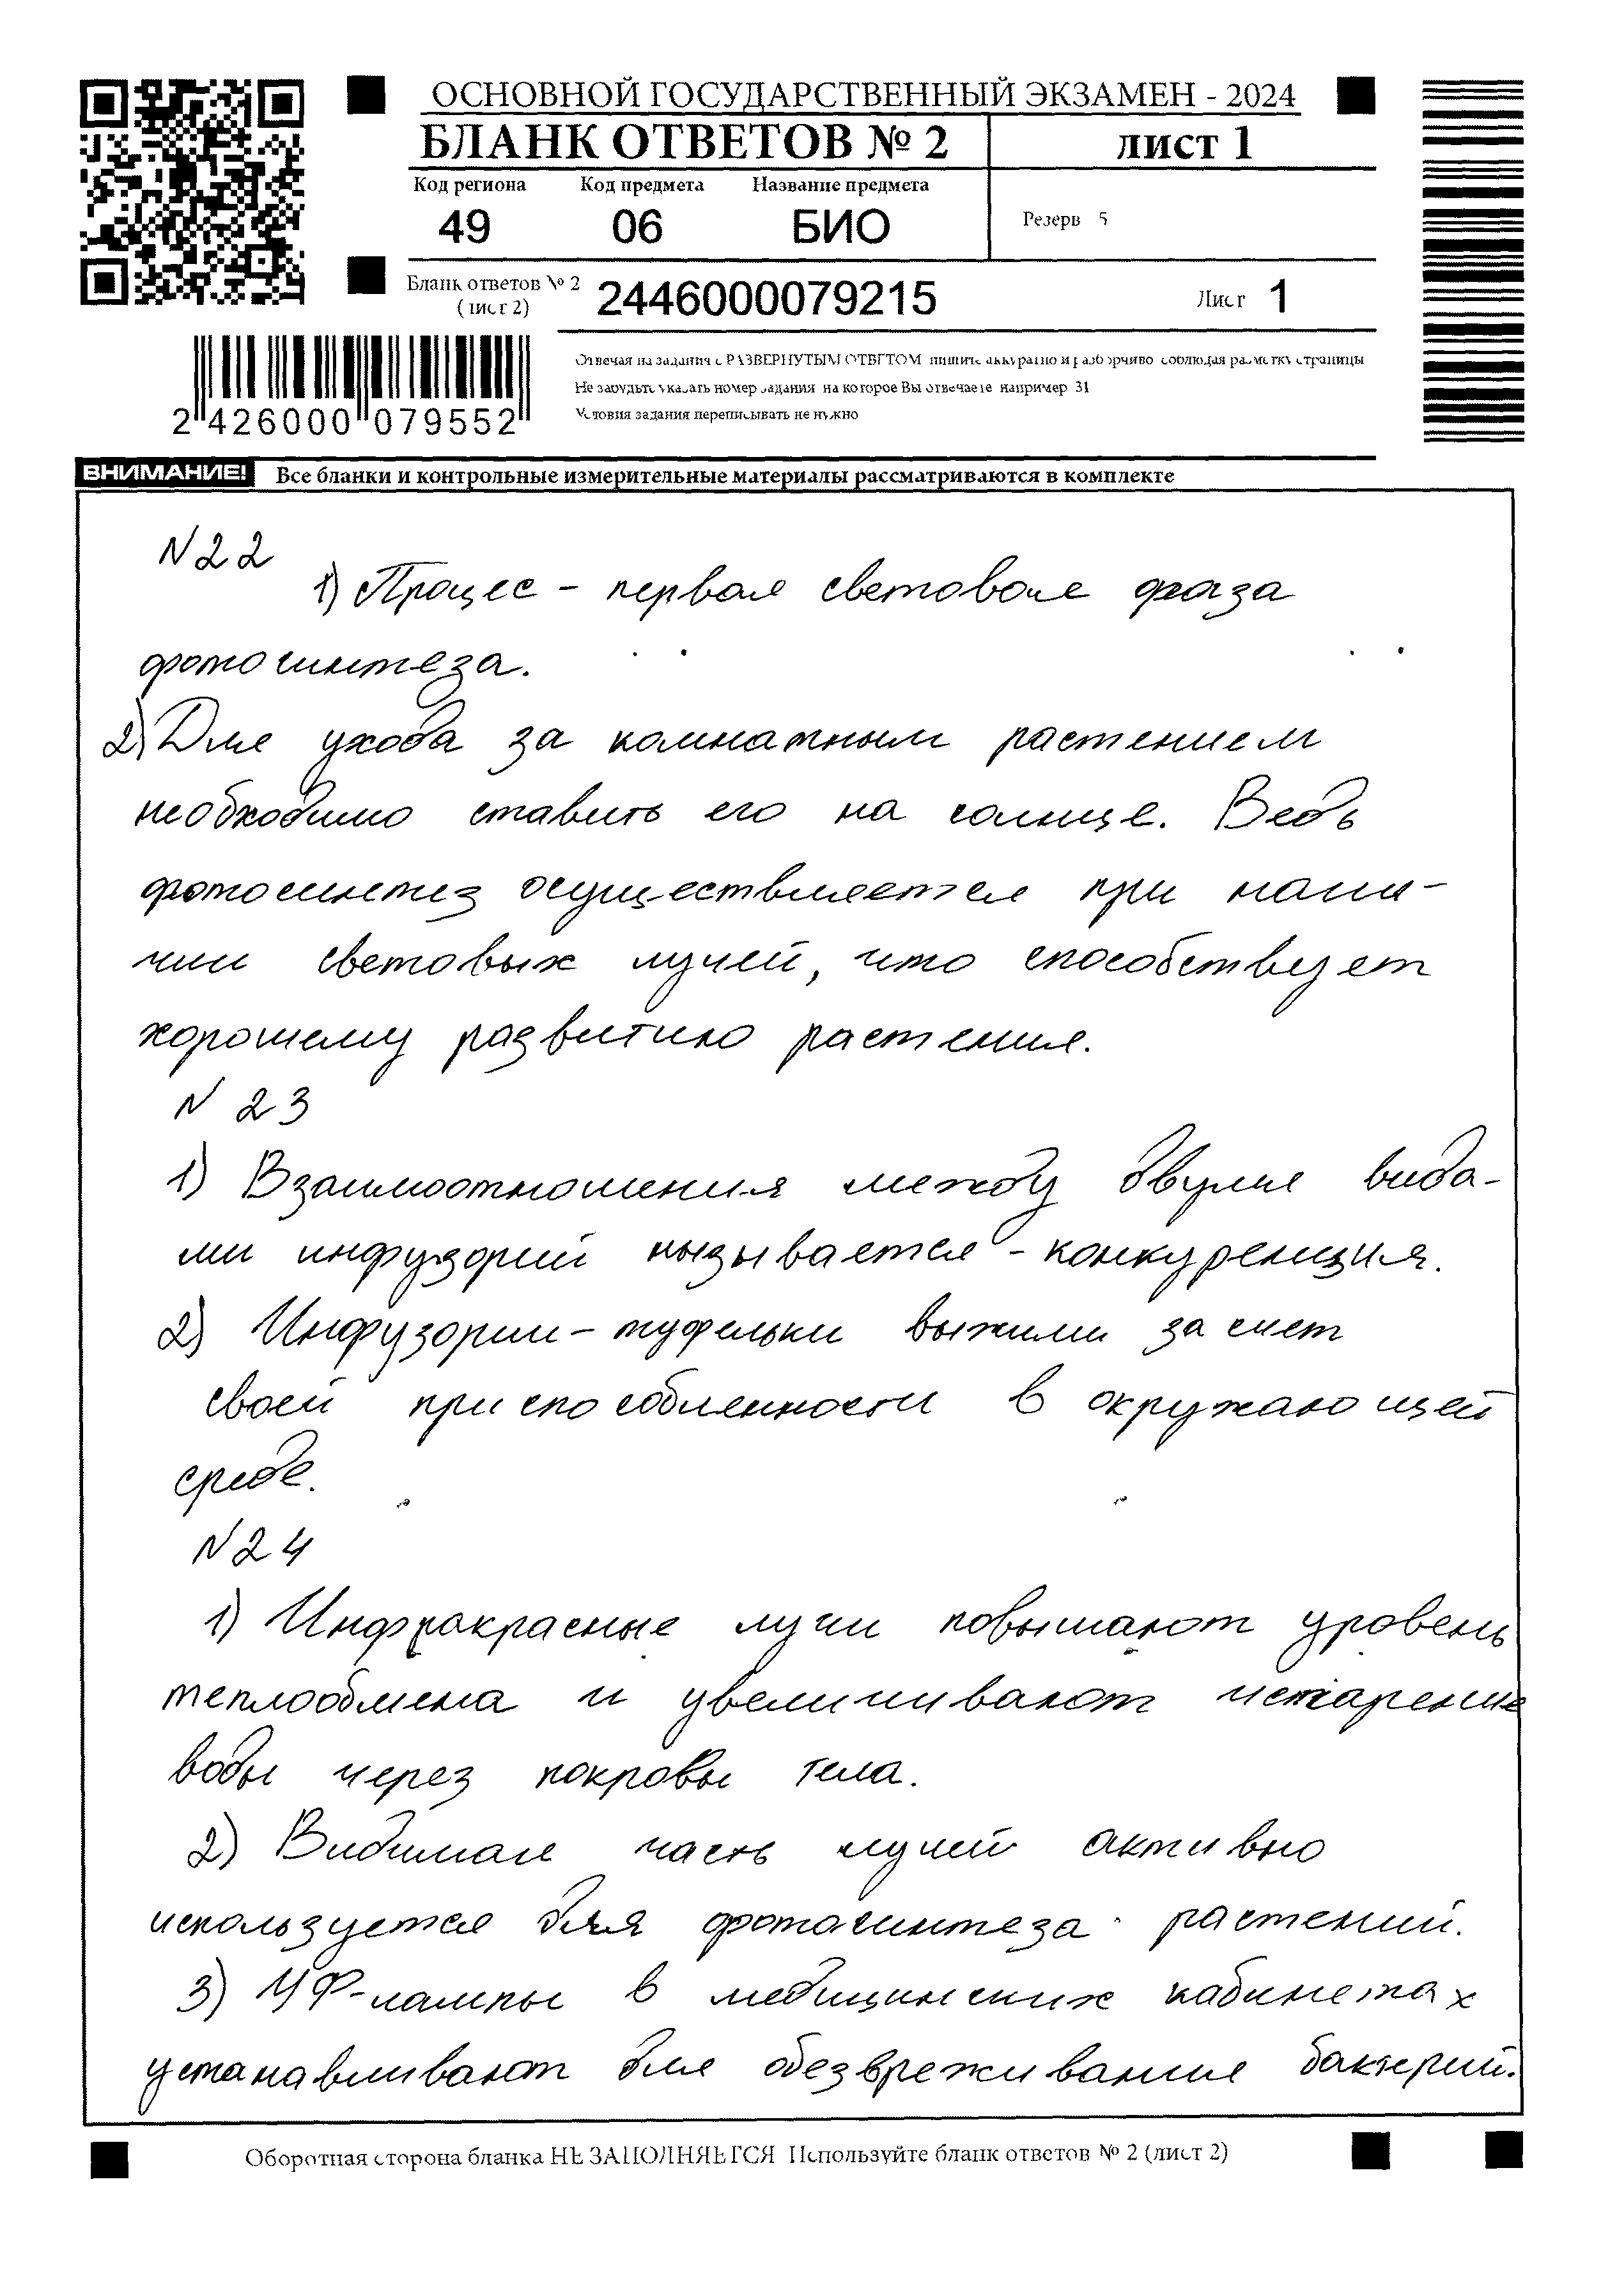 ОСНОВНОЙ ГОСУДАРСТВЕННЫЙ ЭКЗАМЕН - 2024
БЛАНК ОТВЕТОВ № 2
ЛИСТ 1
Код региона
Код предмета
Название предмета
49
06
БИО
Резерв 5
Бланк ответов № 2
(лист 2)
2446000079215
Лист 1
2 426000 079552
Отвечая на задания с РАЗВЕРНУТЫМ ОТВЕТОМ пишите аккуратно и разборчиво соблюдая разметку страницы
Не забудьте указать номер задания на которое Вы отвечаете например 31
Условия задания переписывать не нужно
ВНИМАНИЕ! Все бланки и контрольные измерительные материалы рассматриваются в комплекте
N22
1) Процес – первая световая фаза
фотосинтеза.
2) Для ухода за комнатным растением
необходимо ставить его на солнце. Ведь
фотосинтез осуществляется при нали-
чии световых лучей, что способствует
хорошему развитию растения.
N 23
1) Взаимоотношения между двумя вида-
ми инфузорий называется – конкуренция.
2) Инфузории-туфельки выжили за счет
своей приспособленности в окружающей
среде.
N24
1) Инфракрасные лучи повышают уровень
теплообмена и увеличивают испарение
воды через покровы тела.
2) Видимая часть лучей активно
используется для фотосинтеза растений.
3) УФ-лампы в медицинских кабинетах
устанавливают для обезвреживания бактерий.
Оборотная сторона бланка НЕ ЗАПОЛНЯЕТСЯ Используйте бланк ответов № 2 (лист 2)